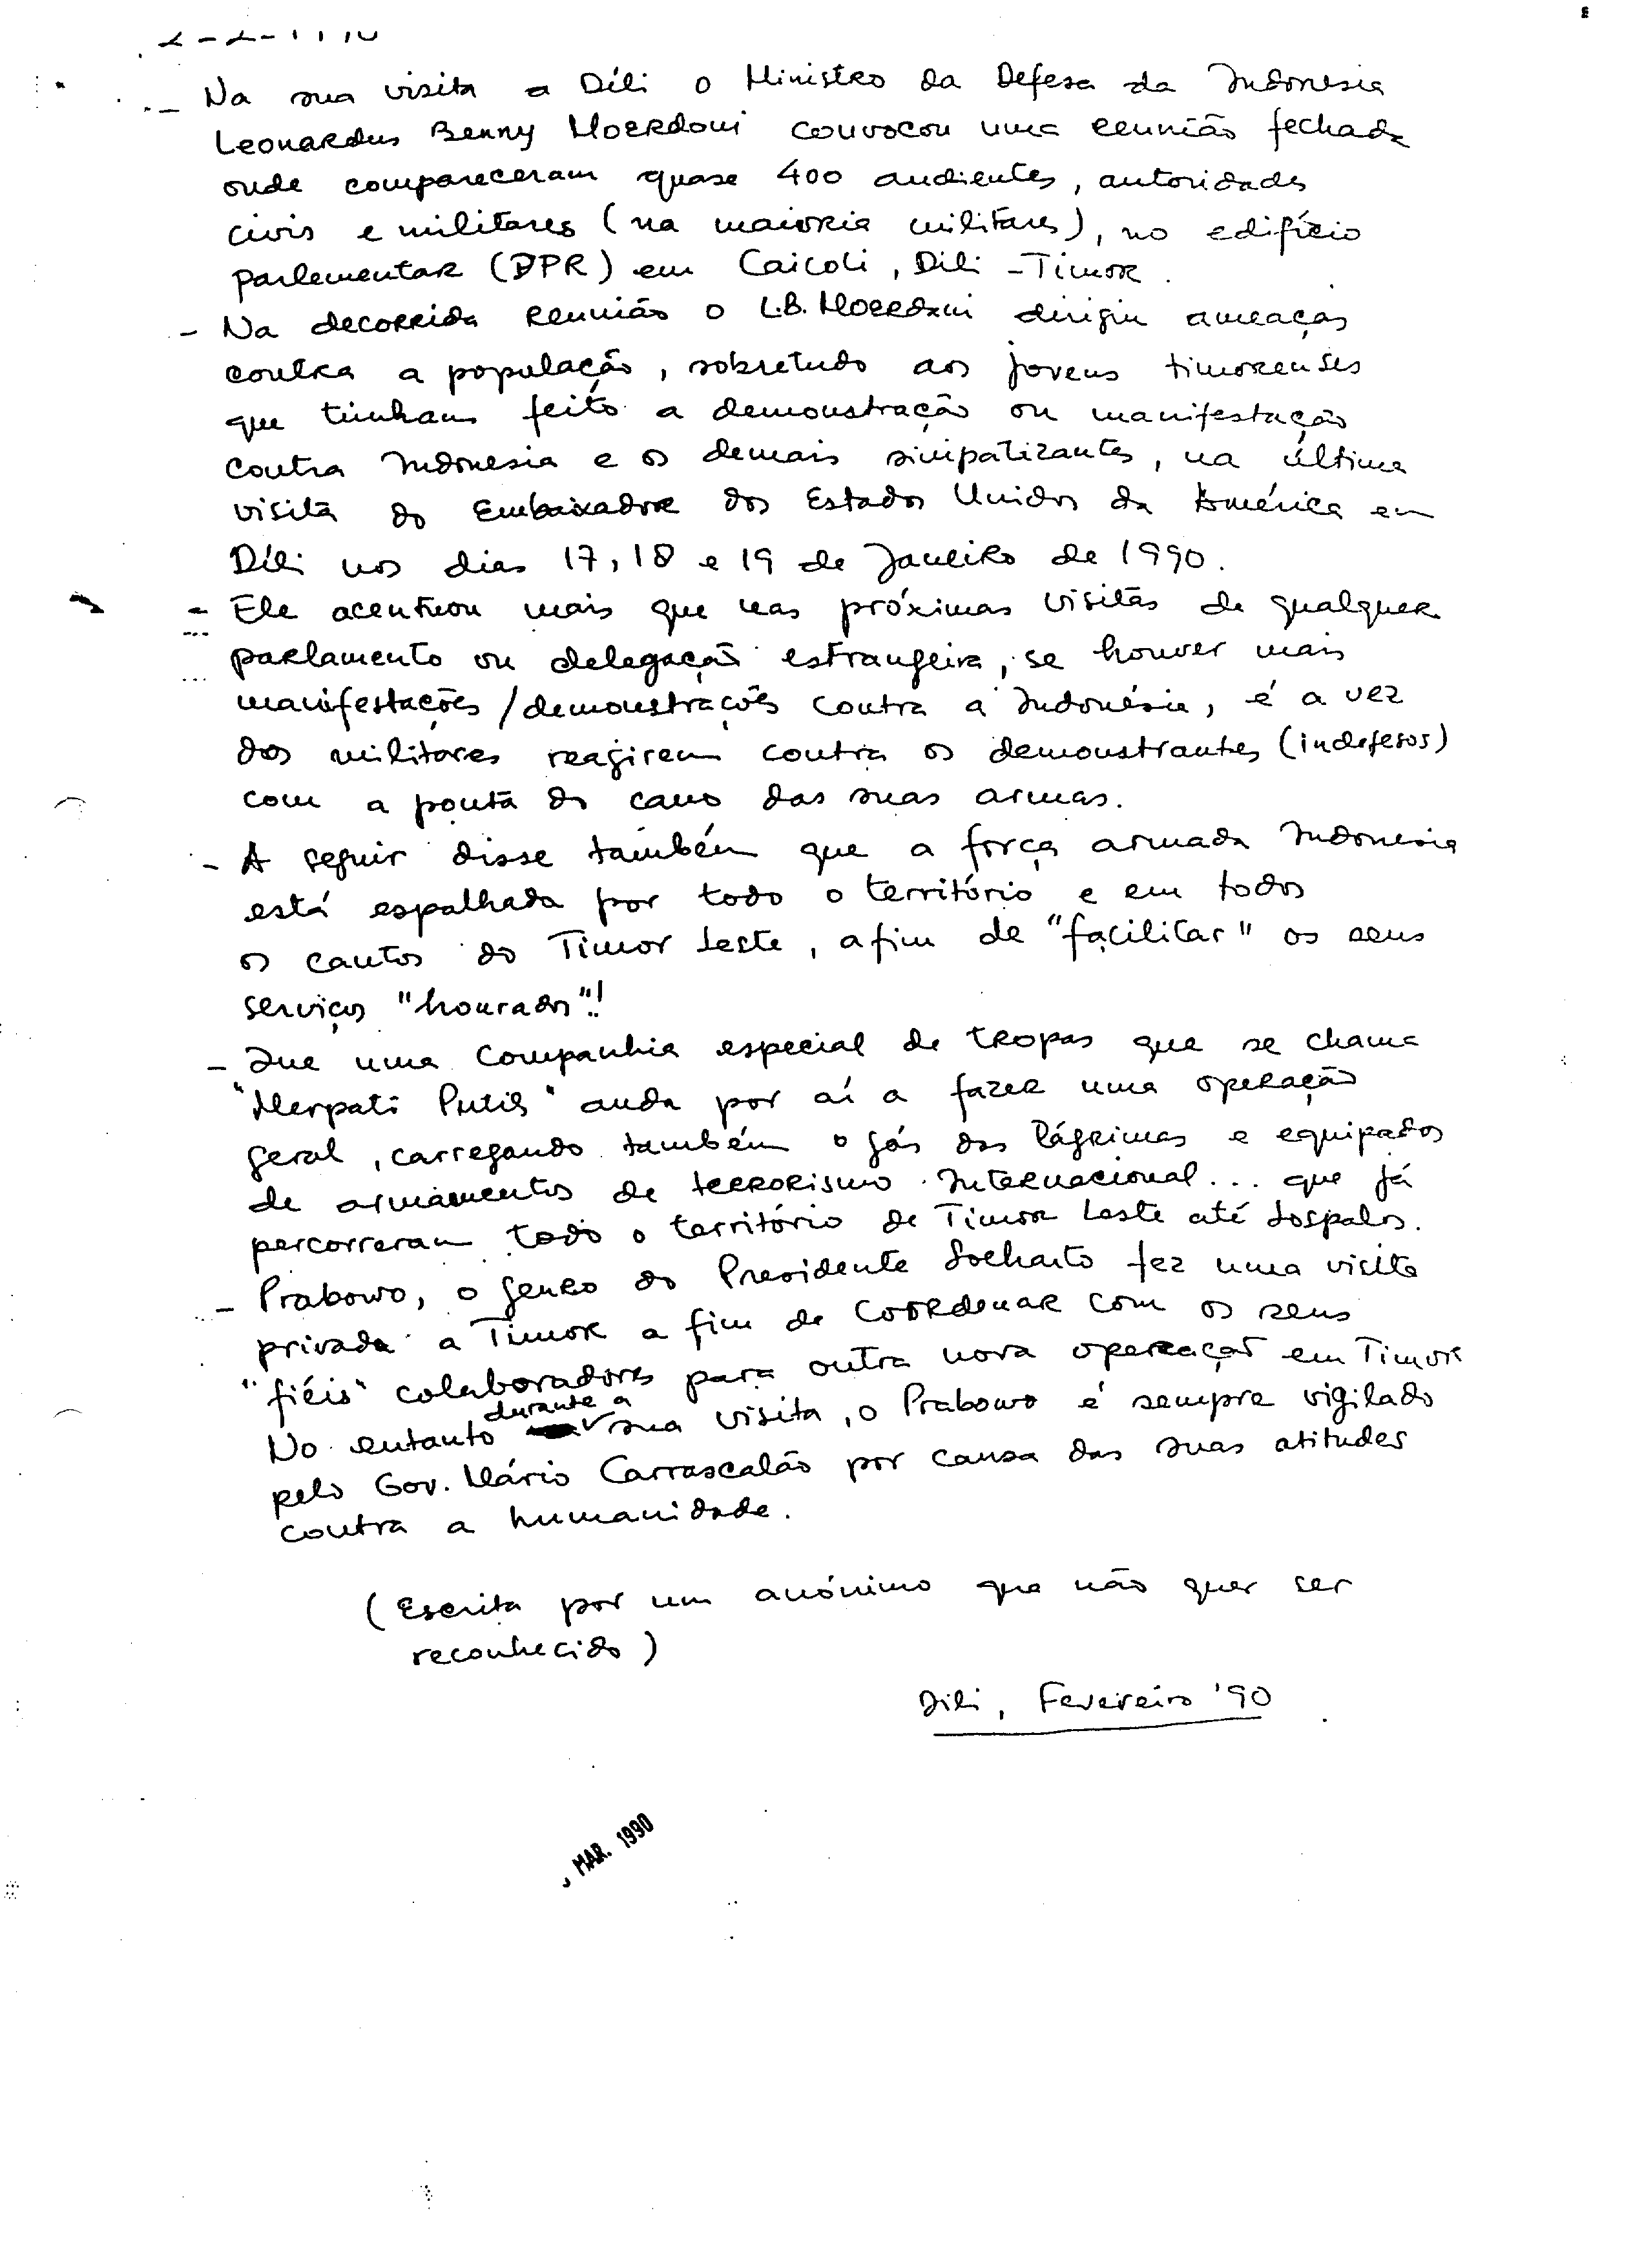 - Na sua visita a Díli o Ministro da Defesa da Indonesia
Leonardus Benny Moerdoni convocou uma reunião fechada
onde compareceram quase 400 audientes, autoridades
civis e militares (na maioria militares), no edifício
parlementar (DPR) em Caicoli, Dili - Timor.
- Na decorrida reunião o L.B. Moerdoni dirigiu ameaças
contra a população, sobretudo aos jovens timorenses
que tinham feito a demonstração ou manifestação
contra Indonesia e os demais simpatizantes, na última
visita do Embaixador dos Estados Unidos da América em
Díli nos dias 17, 18 e 19 de Janeiro de 1990.
- Ele acentuou mais que nas próximas visitas de qualquer
parlamento ou delegação estrangeira, se houver mais
manifestações/demonstrações contra a Indonésia, é a vez
dos militares reagirem contra os demonstrantes (indefesos)
com a ponta do cano das suas armas.
- A seguir disse também que a força armada Indonesia
está espalhada por todo o território e em todos
os cantos do Timor Leste, afim de "facilitar" os seus
serviços "honrados"!
- Que uma Companhia especial de tropas que se chama
"Merpati Putih" anda por aí a fazer uma operação
geral, carregando também o gás das lágrimas e equipados
de armamentos de terrorismo Internacional... que já
percorreram todo o território de Timor Leste até Lospalos.
- Prabowo, o genro do Presidente Soeharto fez uma visita
privada a Timor a fim de coordenar com os seus
"fiéis" colaboradores para outra nova operação em Timor
No entanto durante a sua visita, o Prabowo é sempre vigilado
pelo Gov. Mário Carrascalão por causa das suas atitudes
contra a humanidade.
(Escrita por um anónimo que não quer ser
reconhecido)
Dili, Fevereiro '90
MAR. 1990